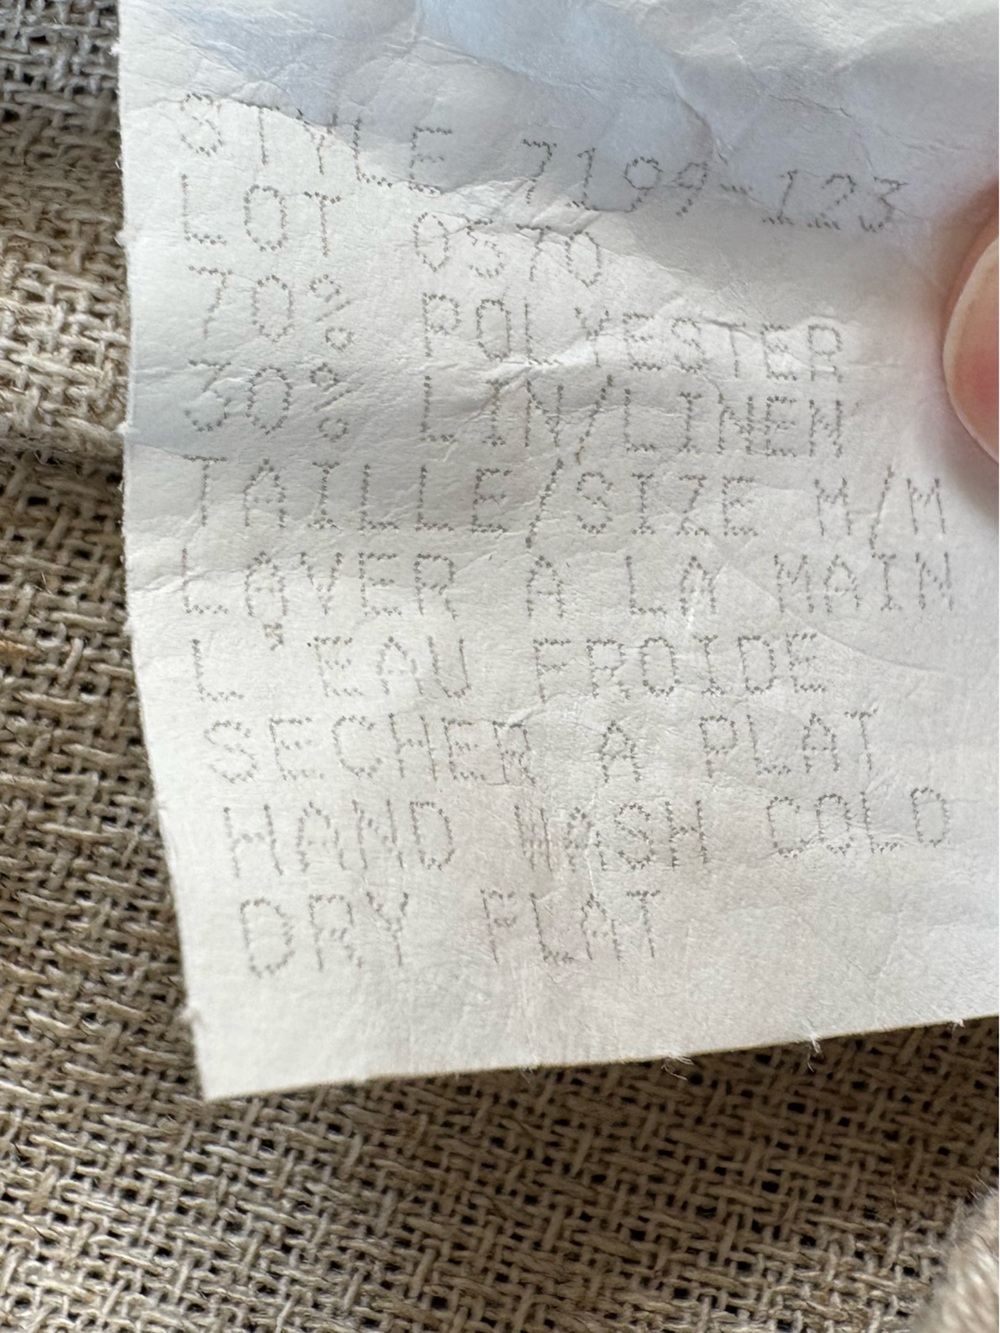 STYLE 7199-123
LOT 0370
70% POLYESTER
30% LIN/LINEN
TAILLE/SIZE M/M
LAVER A LA MAIN
L'EAU FROIDE
SECHER A PLAT
HAND WASH COLD
DRY FLAT